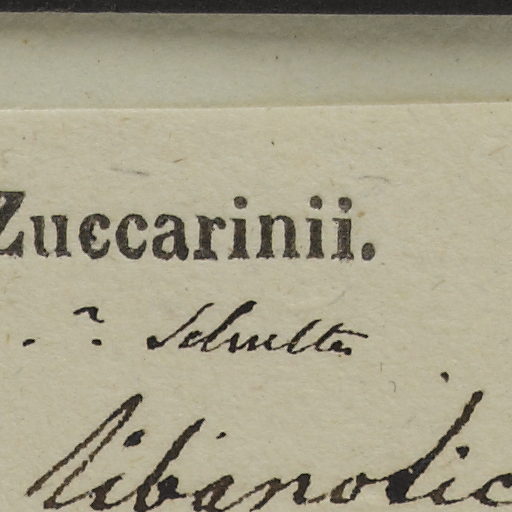 Zuccarinii.
. ? Schultes
libanotic